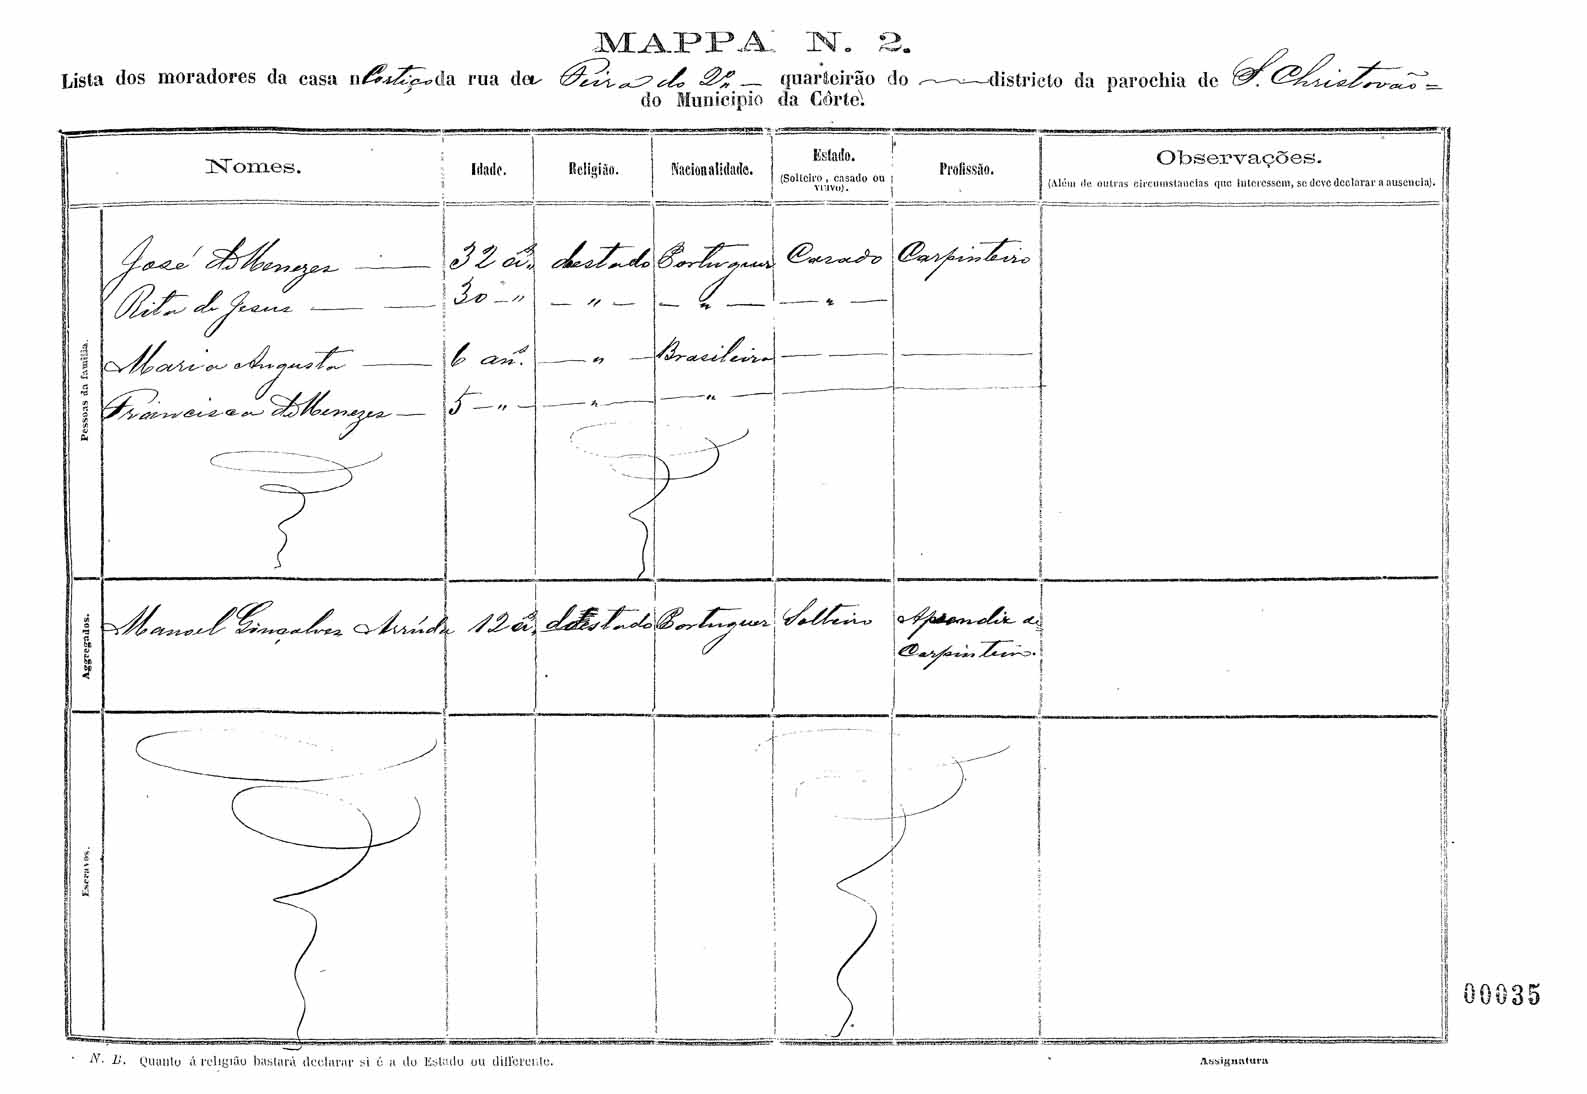 MAPPA N. 2.
Lista dos moradores da casa n Cortiço da rua da Feira do 2º quarteirão do districto da parochia de S. Christovão
do Municipio da Côrte.
Nomes. Idade. Religião. Nacionalidade. Estado. (Solteiro, casado ou viuvo). Profissão. Observações. (Além de outras circumstancias que interessem, se deve declarar a ausencia).
Pessoas da familia.
José de Menezes 32 an.s do estado Portuguez Casado Carpinteiro
Rita de Jesus 30 " " " "
Maria Augusta 6 an.s " Brasileira
Francisca de Menezes 5 " " "
Aggregados.
Manoel Gonçalves Arruda 12 an.s do Estado Portuguez Solteiro Aprendiz de
Carpinteiro.
Escravos.
00035
N. B. Quanto á religião bastará declarar si é a do Estado ou differente.
Assignatura